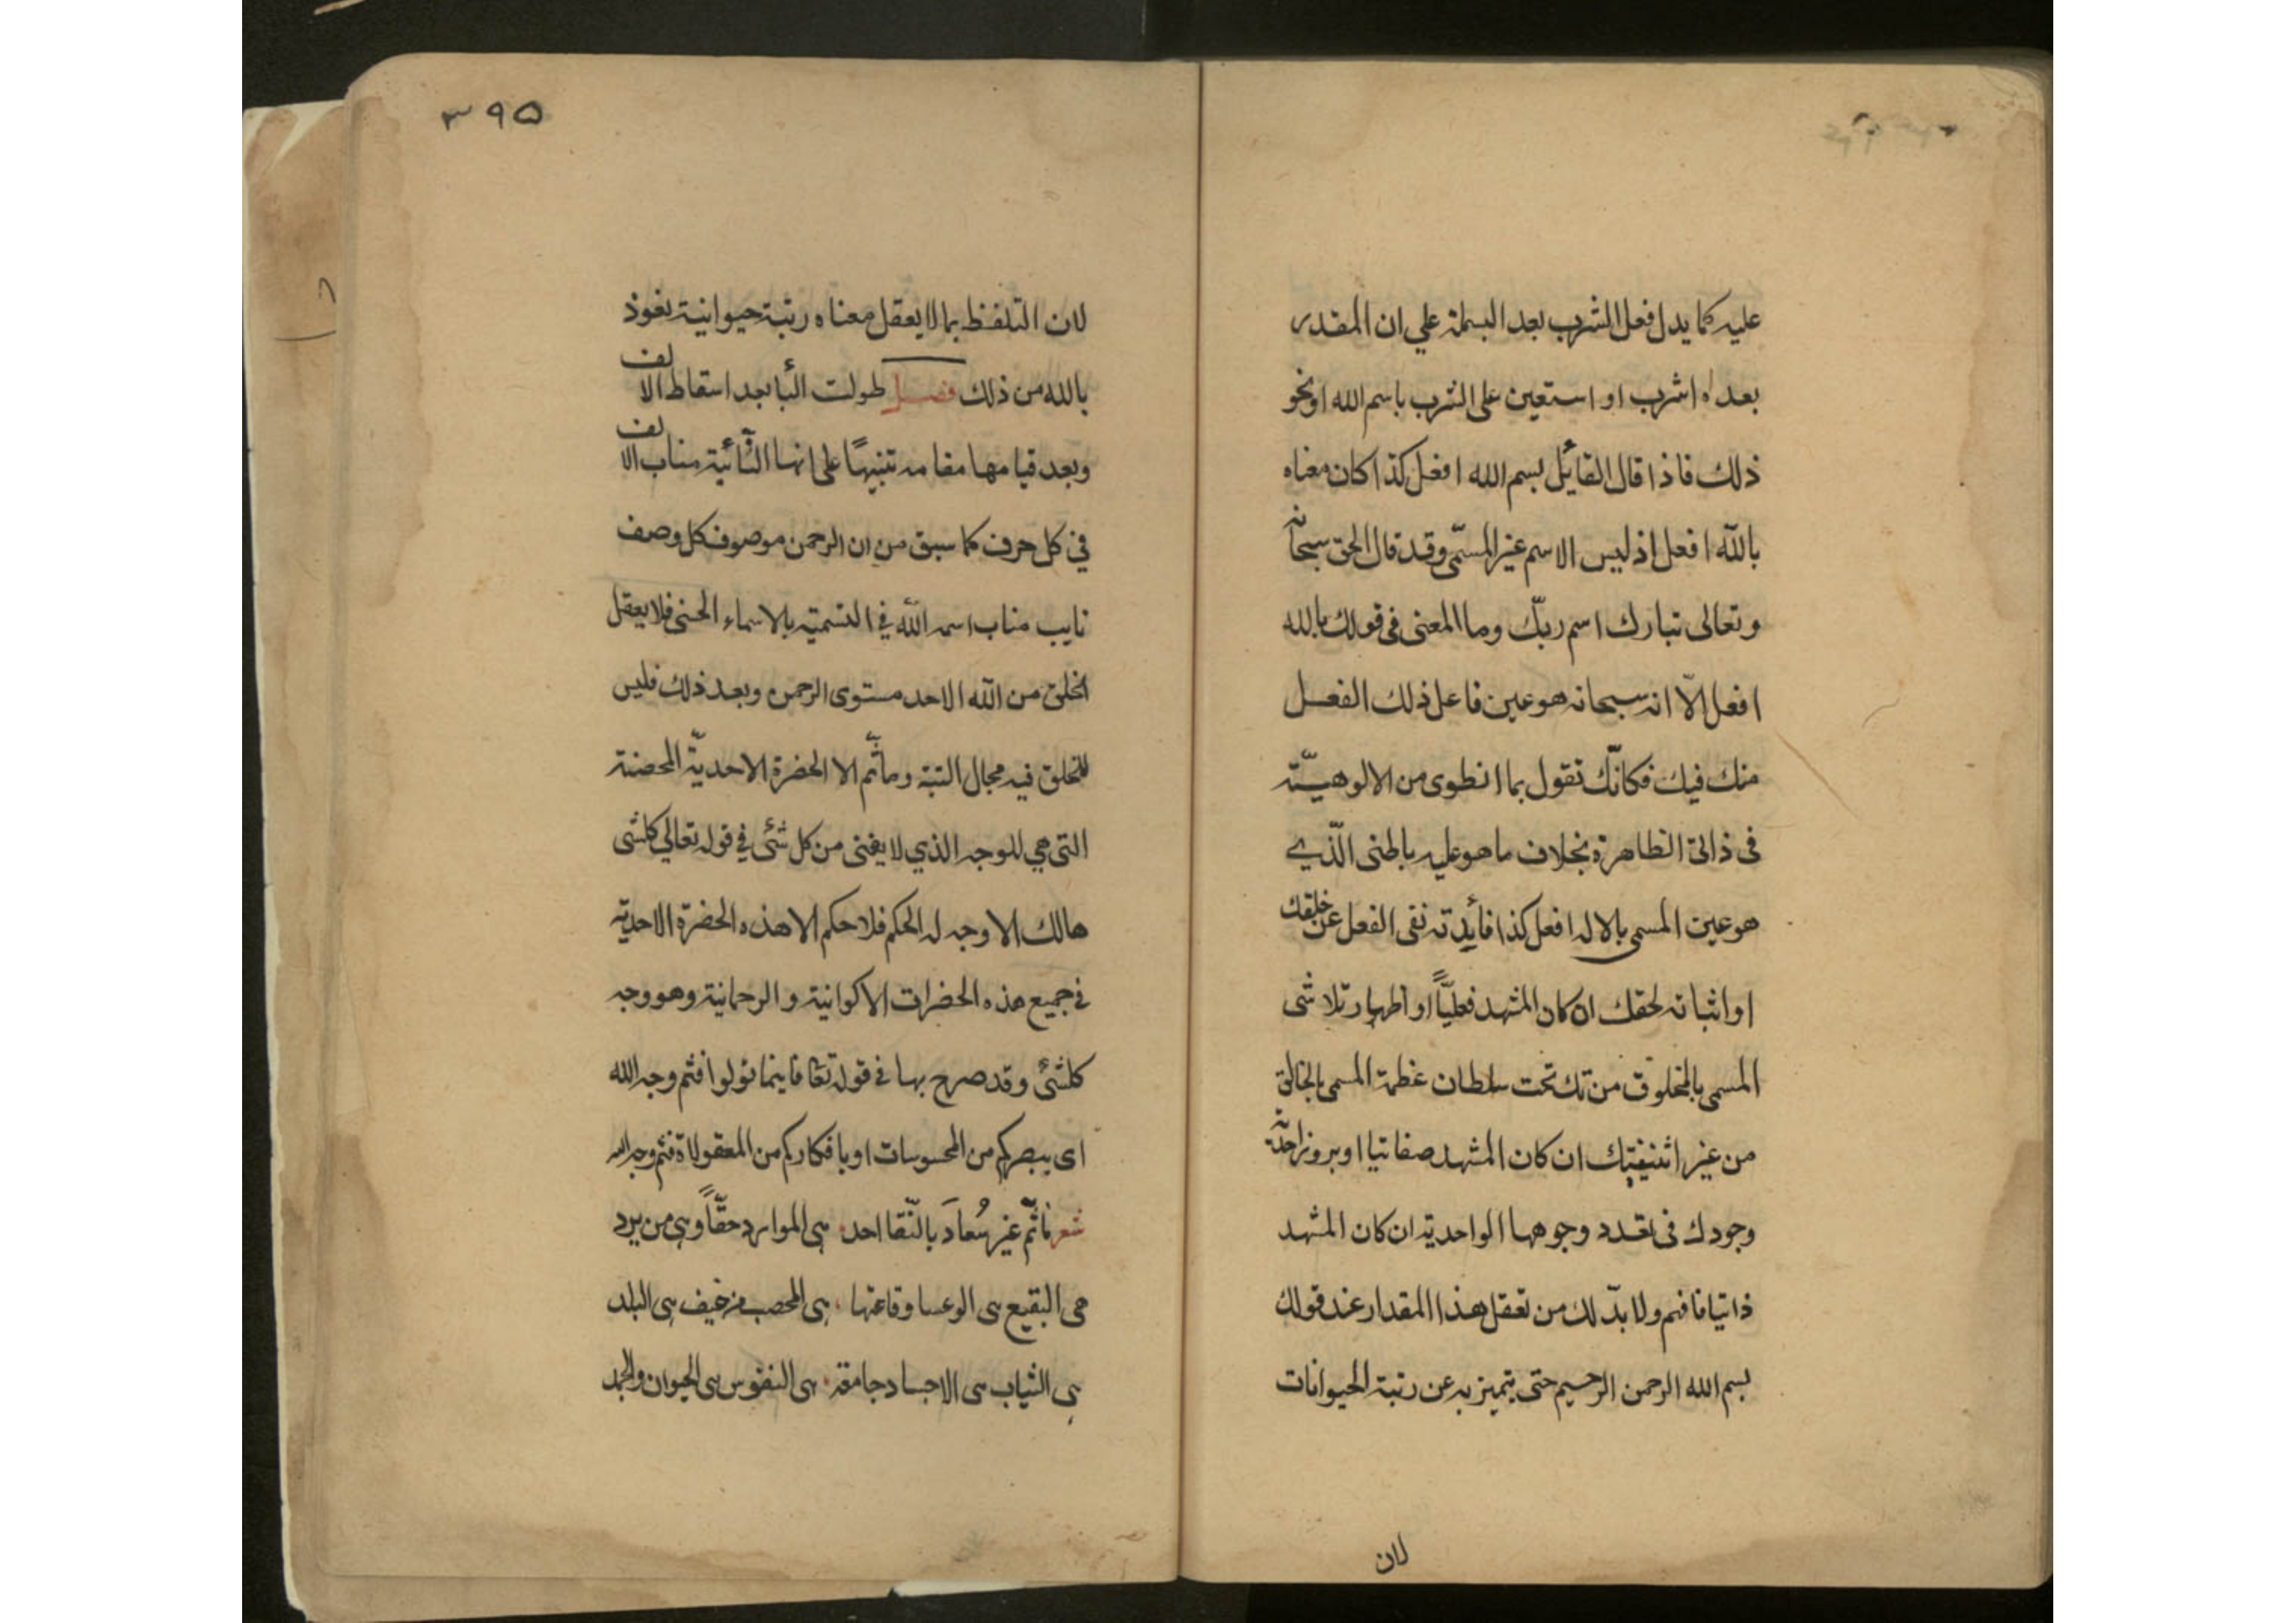 عليه كما يدل فعل الشرب بعد البسملة علي ان المقدر
بعده اشرب او استعين على الشرب باسم الله او نحو
ذلك فاذا قال القائل بسم الله افعل كذا كان معناه
بالله افعل اذ ليس الاسم غير المسمّى وقد قال الحق سبحانه
وتعالى تبارك اسم ربّك وما المعنى فى قولك بالله
افعل الّا انه سبحانه هو عين فاعل ذلك الفعل
منك فيك فكانّك تقول بما انطوى من الالوهيّة
فى ذاتى الظاهرة بخلاف ما هو عليه باطنى الّذي
هو عين المسمى بالاله افعل كذا فأيدته نفى الفعل عن خلقك
او اثباته لحقك ان كان المشهد فعليّاً او اظهار تلاشى
المسمى بالمخلوق منك تحت سلطان عظمة المسمى بالخالق
من غير اثنينيتك ان كان المشهد صفاتيا او بروز احديّة
وجودك فى تعدد وجوهها الواحدية ان كان المشهد
ذاتيا فافهم ولا بدّ لك من تعقل هذا المقدار عند قولك
بسم الله الرحمن الرحيم حتى يتميز به عن رتبة الحيوانات
لان
٣٩٥
لان التلفظ بما لا يعقل معناه رتبة حيوانية نعوذ
بالله من ذلك فصل طولت البأ بعد اسقاط الالف
وبعد قيامها مقامه تنبيهًا على انها النائية مناب الالف
في كل حرف كما سبق من ان الرحمن موصوف كل وصف
نايب مناب اسمه الله في التسمية بالاسماء الحسنى فلا يعقل
الخلق من الله الاحد مستوى الرحمن وبعد ذلك فليس
للخلق فيه مجال البتة وما ثمّ الا الحضرة الاحديّة المحضة
التى هي للوجه الذي لا يفنى من كل شئى في قوله تعالي كلشى
هالك الا وجهه له الحكم فلا حكم الا هذه الحضرة الاحدية
في جميع هذه الحضرات الاكوانية والرحمانية وهو وجه
كلشئ وقد صرح بها فى قوله تعا فاينما تولوا فثم وجه الله
اى ببصركم من المحسوسات او بافكاركم من المعقولات فثم وجه الله
شعر ما ثَمّ غير سُعادَ بالنّقا احد هى الموارد حقّاً وهى من يرد
هى البقيع هى الوعسا وقاعتها هى المحصب من خيف هى البلد
هى الثياب هى الاجساد جامعة هى النفوس هى الحيوان والجمد